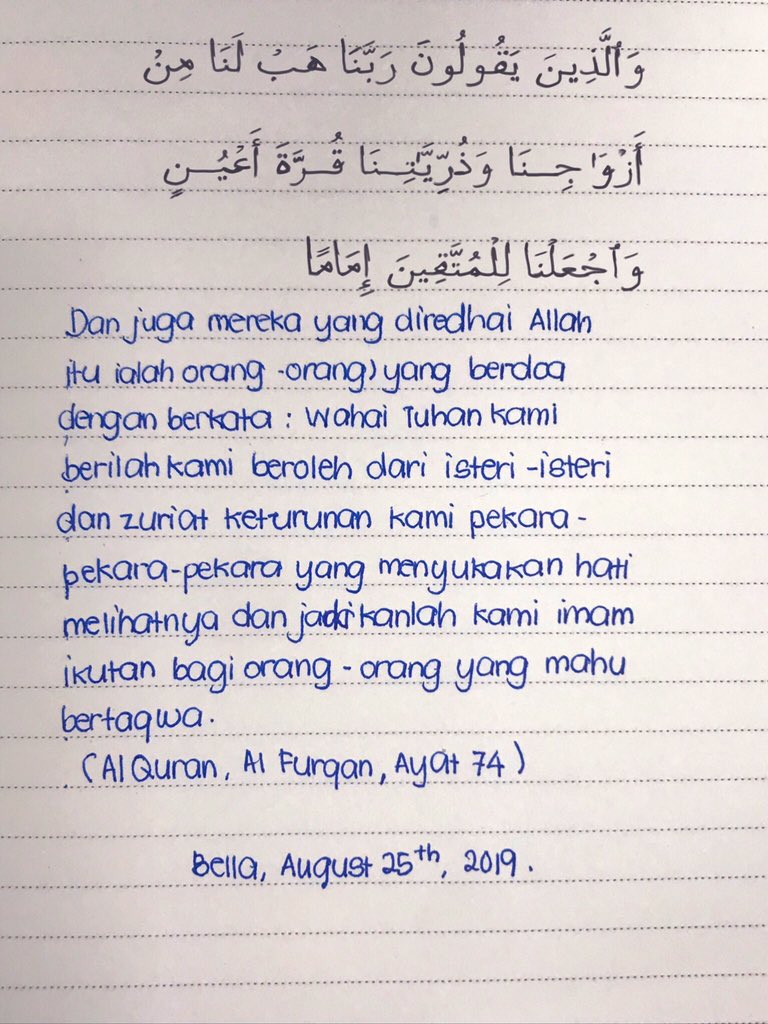 وَٱلَّذِينَ يَقُولُونَ رَبَّنَا هَبْ لَنَا مِنْ
أَزْوَٰجِنَا وَذُرِّيَّٰتِنَا قُرَّةَ أَعْيُنٍ
وَٱجْعَلْنَا لِلْمُتَّقِينَ إِمَامًا
Dan juga mereka yang diredhai Allah
itu ialah orang -orang) yang berdoa
dengan berkata : Wahai Tuhan kami
berilah kami beroleh dari isteri -isteri
dan zuriat keturunan kami pekara -
pekara-pekara yang menyukakan hati
melihatnya dan jadikanlah kami imam
ikutan bagi orang - orang yang mahu
bertaqwa.
(Al Quran, Al Furqan, Ayat 74)
Bella, August 25th, 2019.